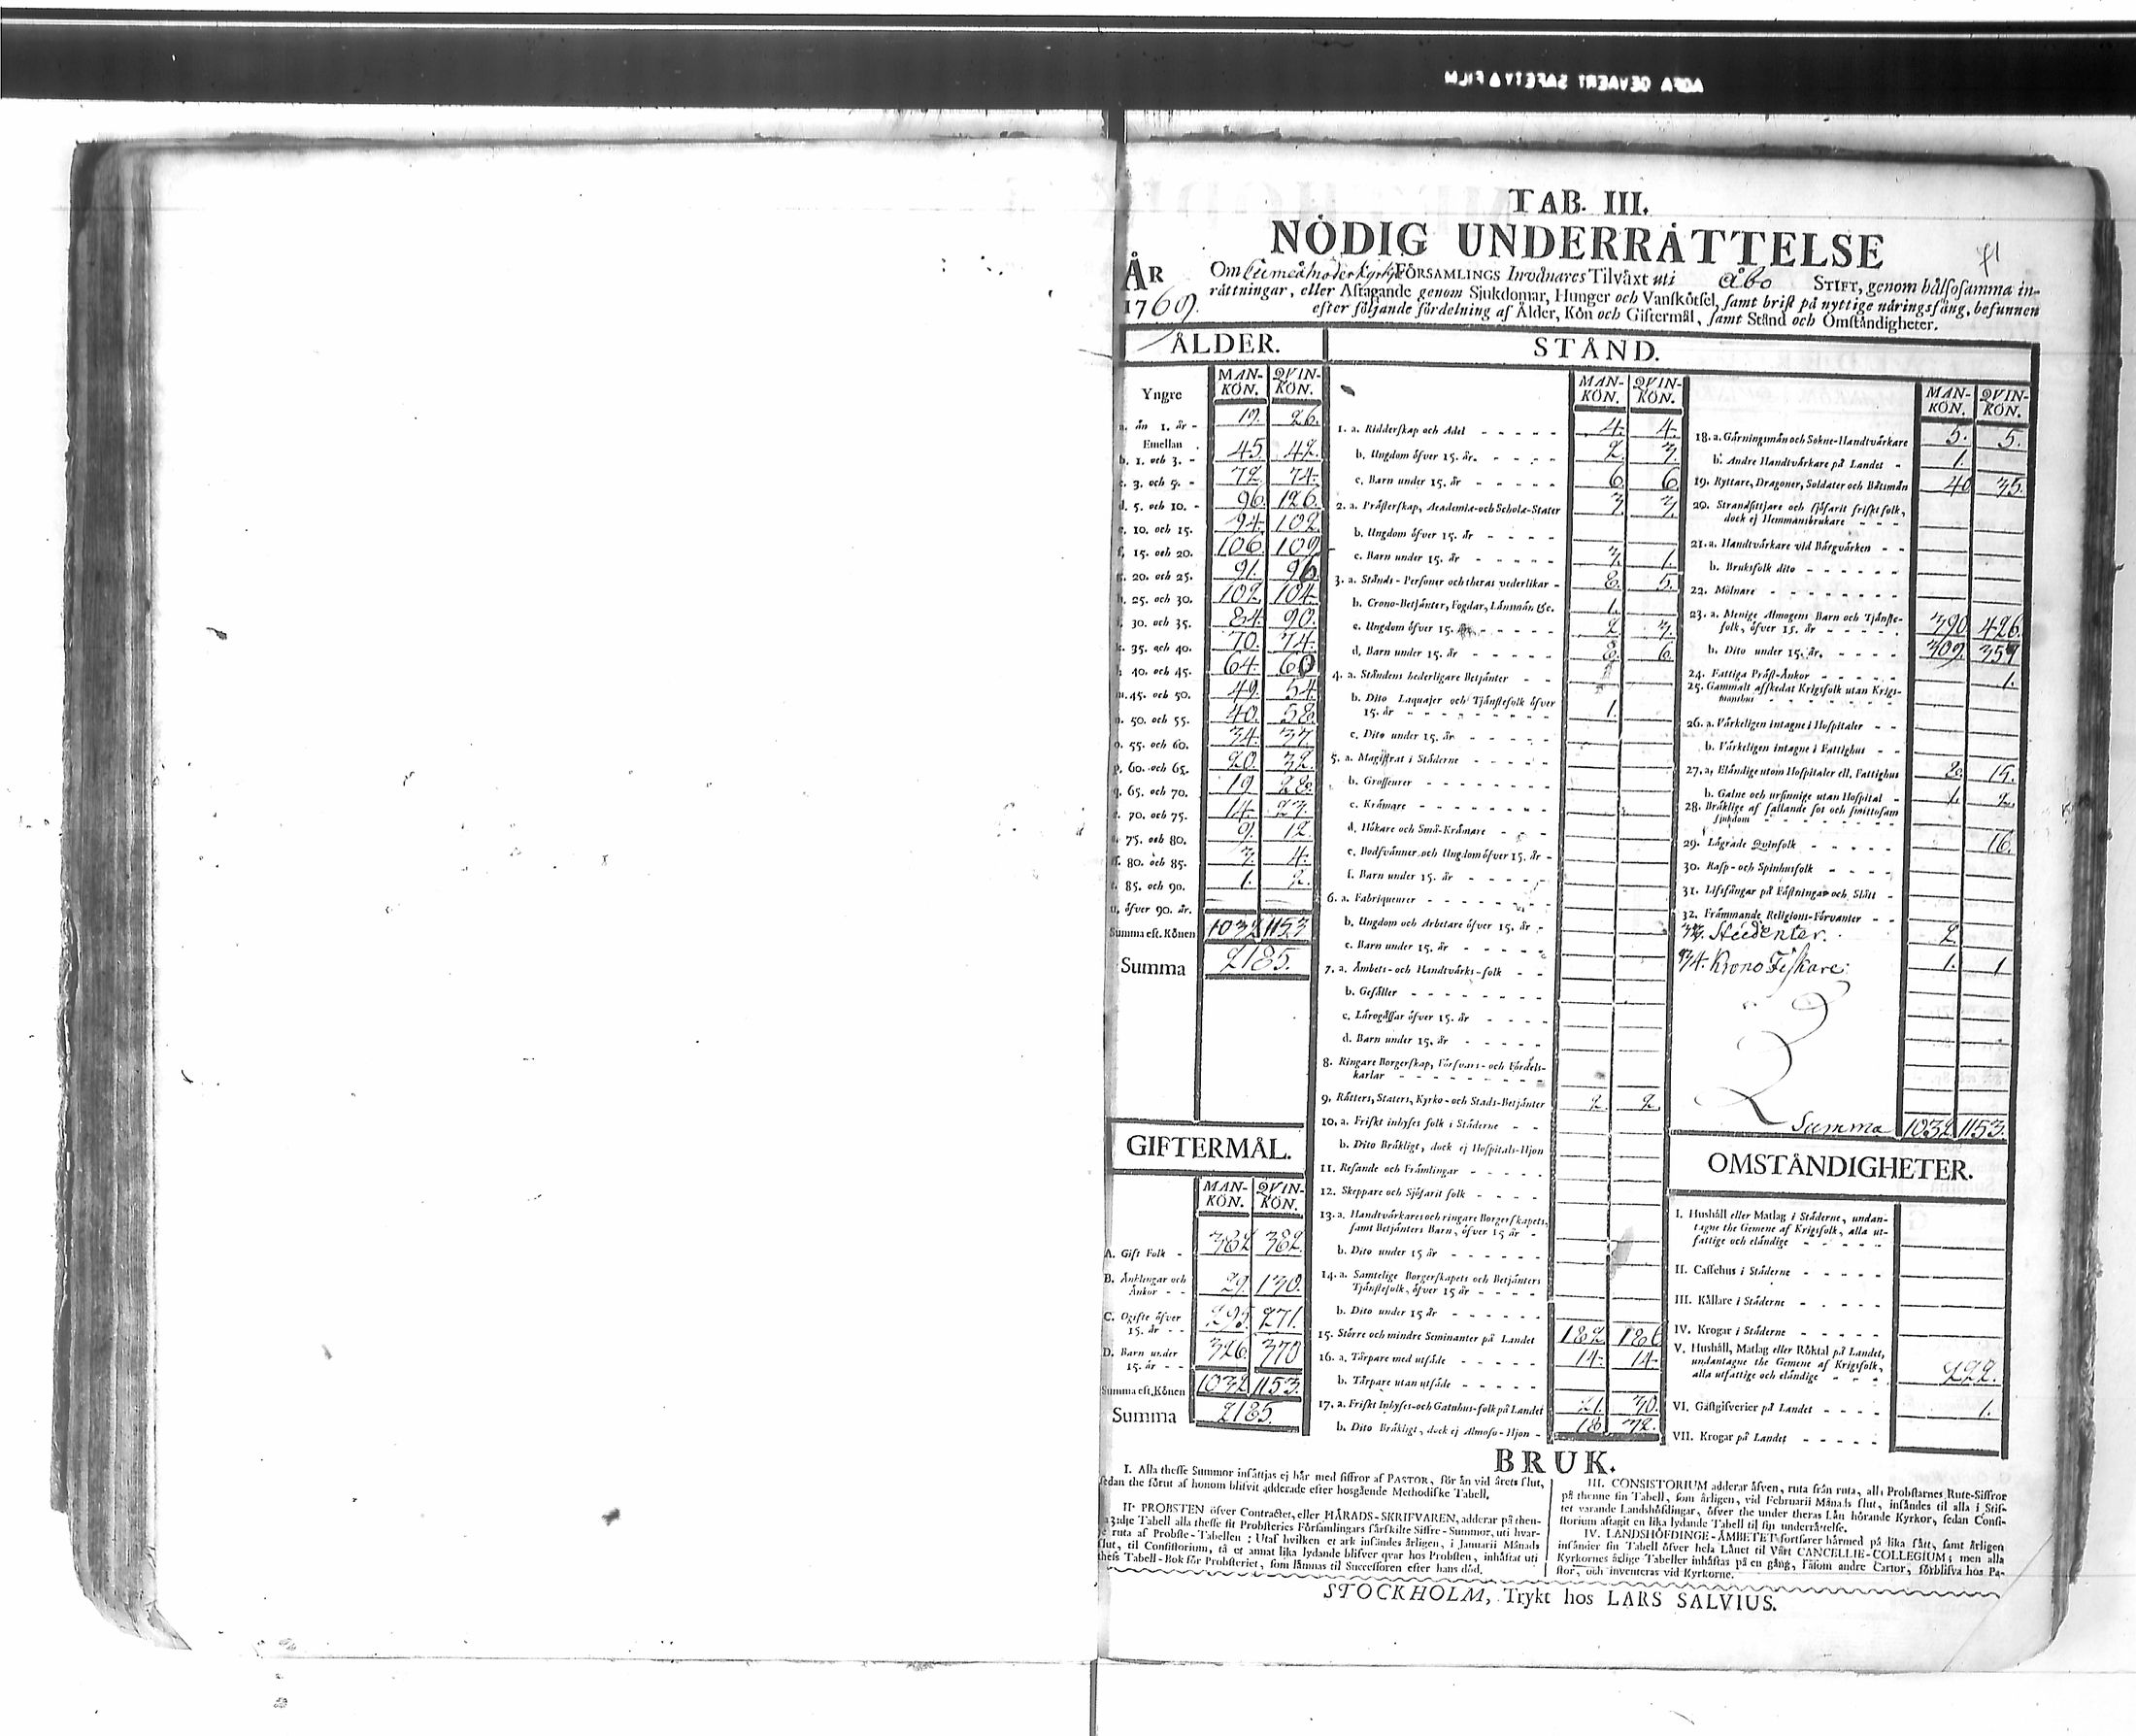 AGFA GEVAERT SAFETY FILM
TAB. III.
NÖDIG UNDERRÅTTELSE
41
ÅR 1769.
Om Cumeå moderkyrk FÖRSAMLINGS Invånares Tilvåxt uti Åbo STIFT, genom hålsosamma in-
råttningar, eller Aftagande genom Sjukdomar, Hunger och Vanskötsel, samt brist på nyttige nåringsfång, befunnen
efter följande fördelning af Ålder, Kön och Giftermål, samt Stånd och Omståndigheter.
ÅLDER.
Yngre MAN-KÖN. QVIN-KÖN.
a. ån 1. år - 19. 26.
Emellan
b. 1. och 3. - 45. 42.
c. 3. och 5. - 72. 74.
d. 5. och 10. - 96. 126.
e. 10. och 15. 94. 102.
f. 15. och 20. 106. 109.
g. 20. och 25. 91. 96.
h. 25. och 30. 102. 104.
i. 30. och 35. 84. 90.
k. 35. och 40. 70. 74.
l. 40. och 45. 64. 60
m. 45. och 50. 49. 54.
n. 50. och 55. 40. 58.
o. 55. och 60. 34. 37.
p. 60. och 65. 20. 32.
q. 65. och 70. 19 28.
r. 70. och 75. 14. 23.
s. 75. och 80. 9. 12.
ss. 80. och 85. 3. 4.
t. 85. och 90. 1. 2.
u. öfver 90. år.
Summa eft. Könen 1032 1153
Summa 2185.
GIFTERMÅL.
MAN-KÖN. QVIN-KÖN.
A. Gift Folk - 382. 382.
B. Ånklingar och Ånkor - - 29. 130.
C. Ogifte öfver 15. år - - 295. 271.
D. Barn under 15. år - - 326. 370
Summa eft. Könen 1032 1153.
Summa 2185.
STÅND.
MAN-KÖN. QVIN-KÖN.
1. a. Ridderskap och Adel 4. 4.
b. Ungdom öfver 15. år. 2. 3.
c. Barn under 15. år 6. 6.
2. a. Pråsterskap, Academiæ-och Scholæ-Stater 3. 3.
b. Ungdom öfver 15. år
c. Barn under 15. år 3. 1.
3. a. Stånds-Personer och theras vederlikar - 8. 5.
b. Crono-Betjånter, Fogdar, Lånsmån &c. 1.
c. Ungdom öfver 15. år 2. 3.
d. Barn under 15. år 8. 6.
4. a. Ståndens hederligare Betjånter
b. Dito Laquajer och Tjånstefolk öfver
15. år 1.
c. Dito under 15. år
5. a. Magistrat i Ståderne
b. Grosseurer
c. Kråmare
d. Hökare och Små-Kråmare
e. Bodsvånner och Ungdom öfver 15. år -
f. Barn under 15. år
6. a. Fabriqueurer
b. Ungdom och Arbetare öfver 15. år -
c. Barn under 15. år
7. a. Åmbets- och Handtvårks-folk
b. Gesåller
c. Lårogåssar öfver 15. år
d. Barn under 15. år
8. Ringare Borgerskap, Försvars- och Fördels-
karlar
9. Råtters, Staters, Kyrko- och Stads-Betjånter 2. 2.
10. a. Friskt inhyses folk i Ståderne
b. Dito Bråkligt, dock ej Hospitals-Hjon
11. Resande och Fråmlingar
12. Skeppare och Sjöfarit folk
13. a. Handtvårkares och ringare Borgerskapets,
samt Betjånters Barn, öfver 15 år -
b. Dito under 15 år
14. a. Samtelige Borgerskapets och Betjånters
Tjånstefolk, öfver 15 år
b. Dito under 15 år
15. Större och mindre Seminanter på Landet 182 186
16. a. Tårpare med utsåde 14. 14.
b. Tårpare utan utsåde
17. a. Friskt Inhyses-och Gatuhus-folk på Landet 21. 30.
b. Dito Bråkligt, dock ej Almoso-Hjon - 18 72.
MAN-KÖN. QVIN-KÖN.
18. a. Gårningsmån och Sokne-Handtvårkare 5. 5.
b. Andre Handtvårkare på Landet - 1.
19. Ryttare, Dragoner, Soldater och Båtsmån 40 35.
20. Strandsittjare och sjöfarit friskt folk,
dock ej Hemmansbrukare
21. a. Handtvårkare vid Bårgvårken
b. Bruksfolk dito
22. Mölnare
23. a. Menige Almogens Barn och Tjånste-
folk, öfver 15. år 390 426.
b. Dito under 15. år. 309. 357
24. Fattiga Pråst-Ånkor 1.
25. Gammalt afskedat Krigsfolk utan Krigs-
manshus
26. a. Vårkeligen intagne i Hospitaler
b. Vårkeligen intagne i Fattighus
27. a. Elåndige utom Hospitaler ell. Fattighus 8. 15.
b. Galne och ursinnige utan Hospital - 1. 2.
28. Bråklige af fallande sot och smittosam
sjukdom
29. Lågrade Qvinfolk 16.
30. Rasp- och Spinhusfolk
31. Lifsfångar på Fåstningar och Slått -
32. Fråmmande Religions-Förvanter
33. Studenter. 2.
34. Krono Fiskare. 1. 1
Summa 1032 1153.
OMSTÅNDIGHETER.
I. Hushåll eller Matlag i Ståderne, undan-
tagne the Gemene af Krigsfolk, alla ut-
fattige och elåndige
II. Caffehus i Ståderne
III. Kållare i Ståderne
IV. Krogar i Ståderne
V. Hushåll, Matlag eller Röktal på Landet,
undantagne the Gemene af Krigsfolk,
alla utfattige och elåndige 222.
VI. Gåstgifverier på Landet 1.
VII. Krogar på Landet
BRUK.
I. Alla thesse Summor insåttjas ej hår med siffror af PASTOR, för ån vid årets slut,
sedan the förut af honom blifvit adderade efter hosgående Methodiske Tabell.
II. PROBSTEN öfver Contractet, eller HÅRADS-SKRIFVAREN, adderar på then-
na 3:dje Tabell alla thesse sit Probsteries Församlingars sårskilte Siffre-Summor, uti hvar-
je ruta af Probste-Tabellen: Utaf hvilken et ark insåndes årligen, i Januarii Månads
slut, til Consistorium, tå et annat lika lydande blifver qvar hos Probsten, inhåftat uti
thess Tabell-Bok för Probsteriet, som låmnas til Successoren efter hans död.
III. CONSISTORIUM adderar åfven, ruta från ruta, alla Probstarnes Rute-Siffror
på thenne sin Tabell, som årligen, vid Februarii Månads slut, insåndes til alla i Stif-
tet varande Landshöfdingar, öfver the under theras Lån hörande Kyrkor, sedan Consi-
storium aftagit en lika lydande Tabell til sin underråttelse.
IV. LANDSHÖFDINGE-ÅMBETET fortfarer hårmed på lika sått, samt årligen
insånder sin Tabell öfver hela Lånet til Vårt CANCELLIE-COLLEGIUM; men alla
Kyrkornes årlige Tabeller inhåftas på en gång, såsom andre Cartor, förblifva hos Pa-
stor, och inventeras vid Kyrkorne.
STOCKHOLM, Trykt hos LARS SALVIUS.